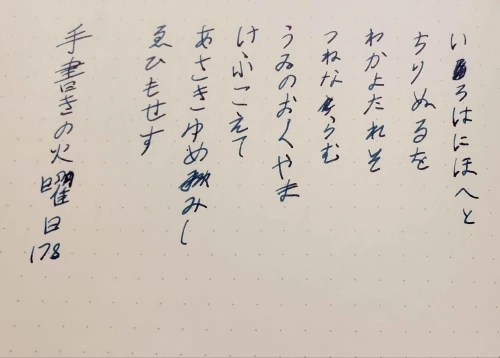 いろはにほへと
ちりぬるを
わかよたれそ
つねならむ
うゐのおくやま
けふこえて
あさきゆめみし
ゑひもせす
手書きの火曜日
178